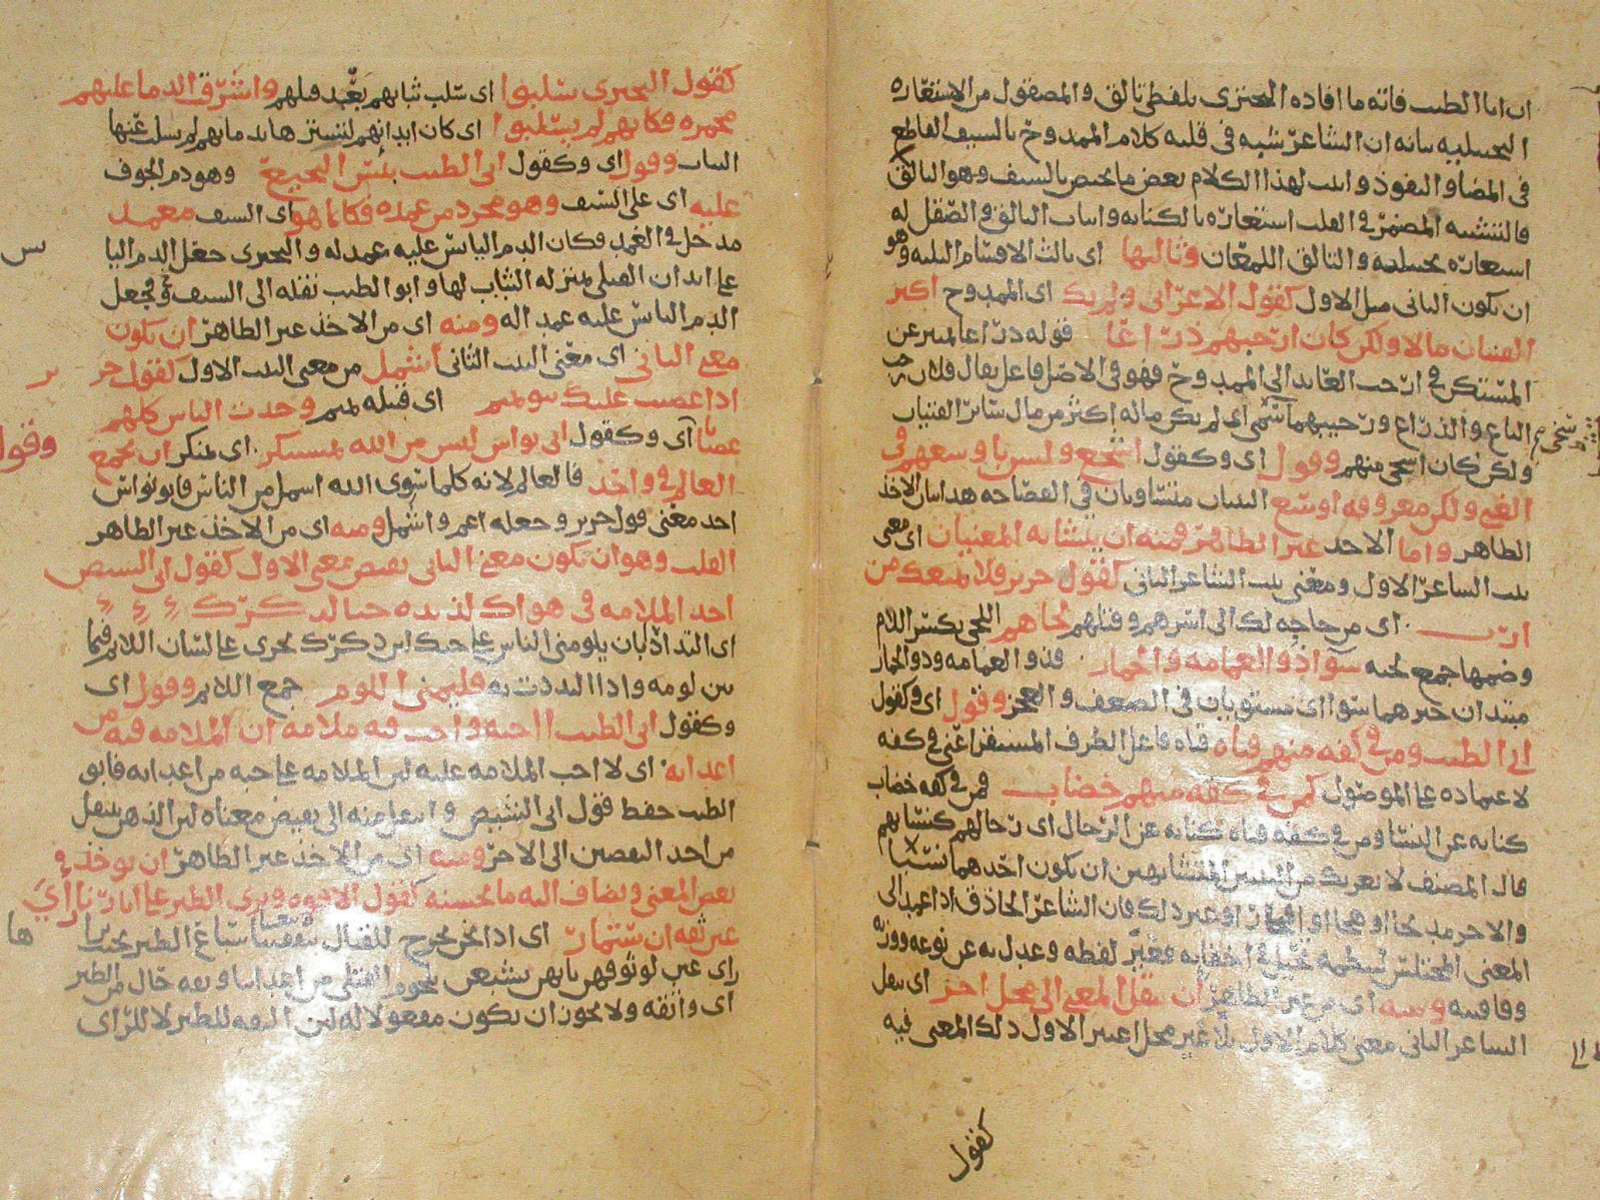 ان ابا الطيب فاته ما افاده البحتري بلفظي تالق والمصقول من الاستعاره
التخييليه بيانه ان الشاعر شبه في قلبه كلام الممدوح بالسيف القاطع
في المضاء والنفوذ واثبت لهذا الكلام بعض ما يختص بالسيف وهو التالق
فالتشبيه المضمر في القلب استعاره بالكنايه واثبات التالق والصقل له
استعاره تخييليه والتالق اللمعان وثالثها اى ثالث الاقسام الثلثه وهو
ان يكون الثانى مثل الاول كقول الاعرابى ولم يك اى الممدوح اكثر
الفتيان مالا ولكن كان ارحبهم ذراعا قوله ذراعا تميز عن
المستكن في ارحب العايد الى الممدوح فهو في الاصل فاعل يقال فلان رحب
الباع والذراع ورحيبهما اى لم يكن ماله اكثر من مال سائر الفتيان
ولكن كان اسخى منهم وقول اى وكقول اشجع وليس باوسعهم في
الغنى ولكن معروفه اوسع البيتان متساويان في الفصاحه هذا بيان الاخذ
الظاهر واما الاخذ غير الظاهر فمنه ان يتشابه المعنيان اى معنى
بيت الشاعر الاول ومعنى بيت الشاعر الثانى كقول جرير فلا يمنعك من
ارب اى من حاجه لك الى اسرهم وقتلهم لحاهم اللحى بكسر اللام
وضمها جمع لحيه سواء ذو العمامه والخمار فذو العمامه وذو الخمار
مبتدان خبرهما سواء اى مستويان في الضعف والعجز وقول اى وكقول
ابى الطيب ومن في كفه منهم قناه قناه فاعل الظرف المستقر اعنى في كفه
لاعتماده على الموصول كمن في كفه منهم خضاب فمن في كفه خضاب
كنايه عن النساء ومن في كفه قناه كنايه عن الرجال اى رجالهم كنسائهم
قال المصنف لا يغرنك من البيتين المتشابهين ان يكون احدهما نسيبا
والاخر مديحا او هجاء او افتخارا او غير ذلك فان الشاعر الحاذق اذا عمد الى
المعنى المختلس لينظمه تحيل في اخفائه فغير لفظه وعدل به عن نوعه ووزنه
وقافيته ومنه اى من غير الظاهر ان ينقل المعنى الى محل اخر اى ينقل
الشاعر الثانى معنى كلام الاول الى غير محل اعتبر الاول ذلك المعنى فيه
كقول
كقول البحترى سلبوا اى سلب ثيابهم بعد قتلهم واشرقت الدماء عليهم
محمره فكانهم لم يسلبوا اى كان ابدانهم لتسترها بدمائهم لم يسلب عنها
الثياب وقول اى وكقول ابى الطيب يبس النجيع وهو دم الجوف
عليه اى على السيف وهو مجرد من غمده فكانما هو اى السيف مغمد
مدخل في الغمد وكان الدم اليابس عليه غمد له والبحترى جعل الدم اليابس
على ابدان القتلى بمنزله الثياب لها وابو الطيب نقله الى السيف فجعل
الدم اليابس عليه غمدا له ومنه اى من الاخذ غير الظاهر ان يكون
معنى الثانى اى معنى البيت الثانى اشمل من معنى البيت الاول كقول جرير
اذا غضبت عليك بنو تميم اى قبيله تميم وجدت الناس كلهم
غضابا اى وكقول ابى نواس ليس من الله بمستنكر اى بمنكر ان يجمع
العالم في واحد فالعالم لانه كلما سوى الله اشمل من الناس فابو نواس
اخذ معنى قول جرير وجعله اعم واشمل ومنه اى من الاخذ غير الظاهر
القلب وهو ان يكون معنى الثانى نقيض معنى الاول كقول ابى الشيص
اجد الملامه في هواك لذيذه حبا لذكرك
اى التذاذا بان يلومنى الناس على حبك اذ ذكرك يجرى على لسان اللائم فيما
بين لومه واذا التذذت به فليلمنى اللوم جمع اللائم وقول اى
وكقول ابى الطيب ااحبه واحب فيه ملامه ان الملامه فيه من
اعدائه اى لا احب الملامه عليه لان الملامه على حبه من اعدائه فابو
الطيب حفظ قول ابى الشيص وانتقل منه الى نقيض معناه لان الذهن ينتقل
من احد النقيضين الى الاخر ومنه اى من الاخذ غير الظاهر ان يوخذ
بعض المعنى ويضاف اليه ما يحسنه كقول الافوه وترى الطير على اثارنا راى
عين ثقه ان ستمار اى اذا نحن نخرج للقتال
راى عين لوثوقهن بانهن يشبعن بلحوم القتلى من اعدائنا وثقه حال من الطير
اى واثقه ولا يجوز ان يكون مفعولا له لان الثقه للطير لا للراى
وقول
ها